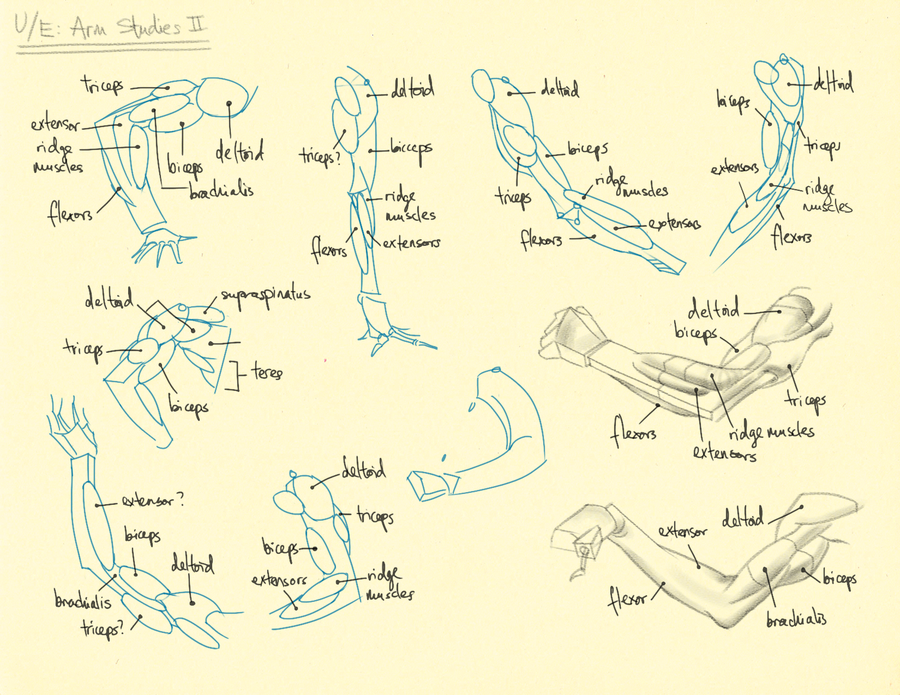 U/E: Arm Studies II
triceps
extensor
ridge
muscles
flexors
biceps
brachialis
deltoid
deltoid
triceps?
biceps
ridge
muscles
flexors
extensors
deltoid
biceps
triceps
ridge
muscles
extensors
flexors
deltoid
biceps
triceps
extensors
ridge
muscles
flexors
deltoid
supraspinatus
triceps
teres
biceps
deltoid
biceps
triceps
ridge muscles
extensors
flexors
extensor?
biceps
deltoid
brachialis
triceps?
deltoid
triceps
biceps
extensors
ridge
muscles
extensor
deltoid
biceps
flexor
brachialis